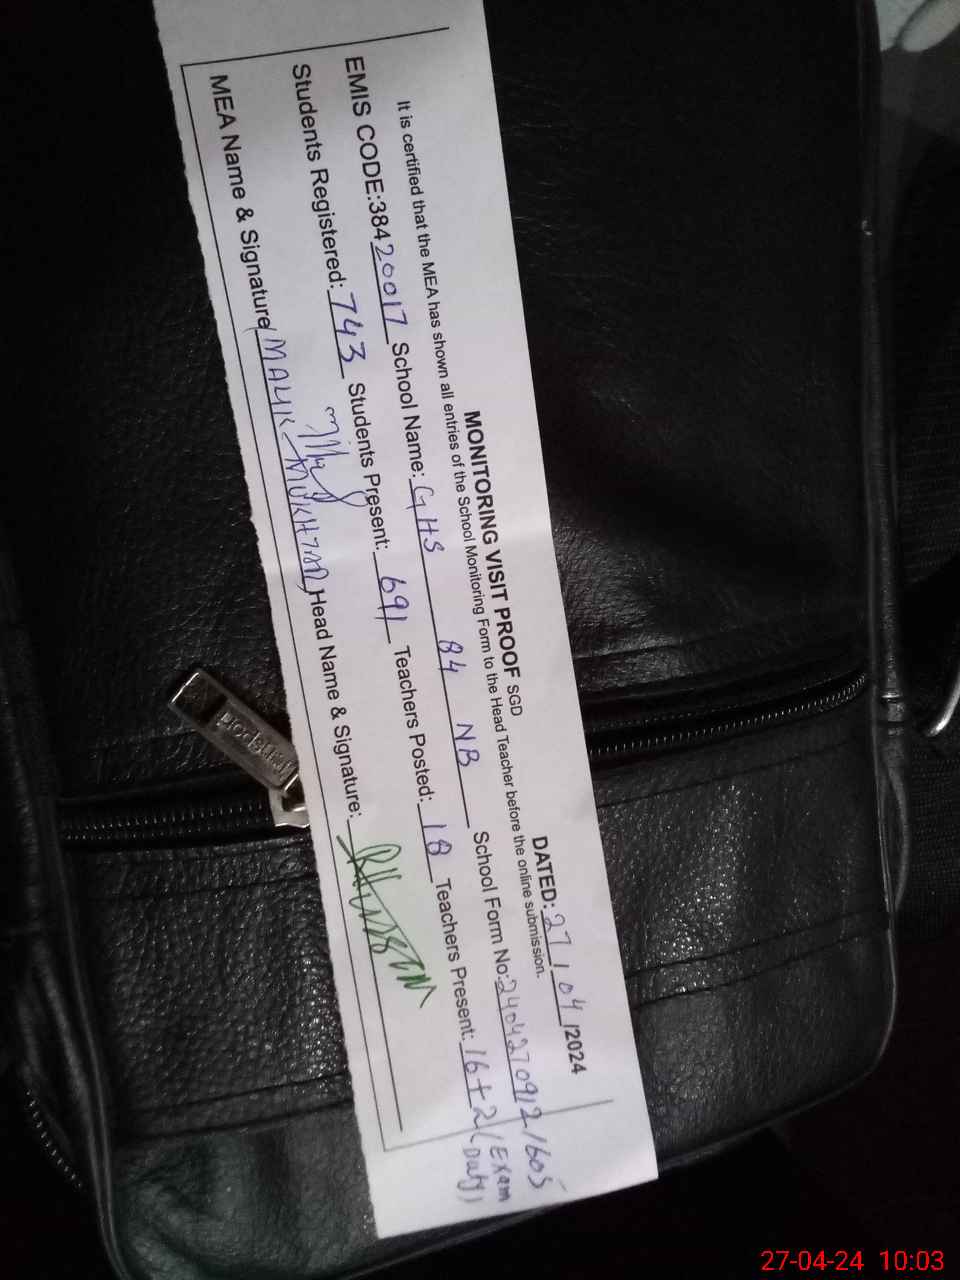 MONITORING VISIT PROOF SGD DATED: 27/04/2024
It is certified that the MEA has shown all entries of the School Monitoring Form to the Head Teacher before the online submission.
EMIS CODE:38420017 School Name: GHS 84 NB School Form No:2404270912/605
Students Registered: 743 Students Present: 691 Teachers Posted: 18 Teachers Present: 16+2 (Exam Duty)
MEA Name & Signature (MALIK MUKHTAR) Head Name & Signature:
27-04-24 10:03